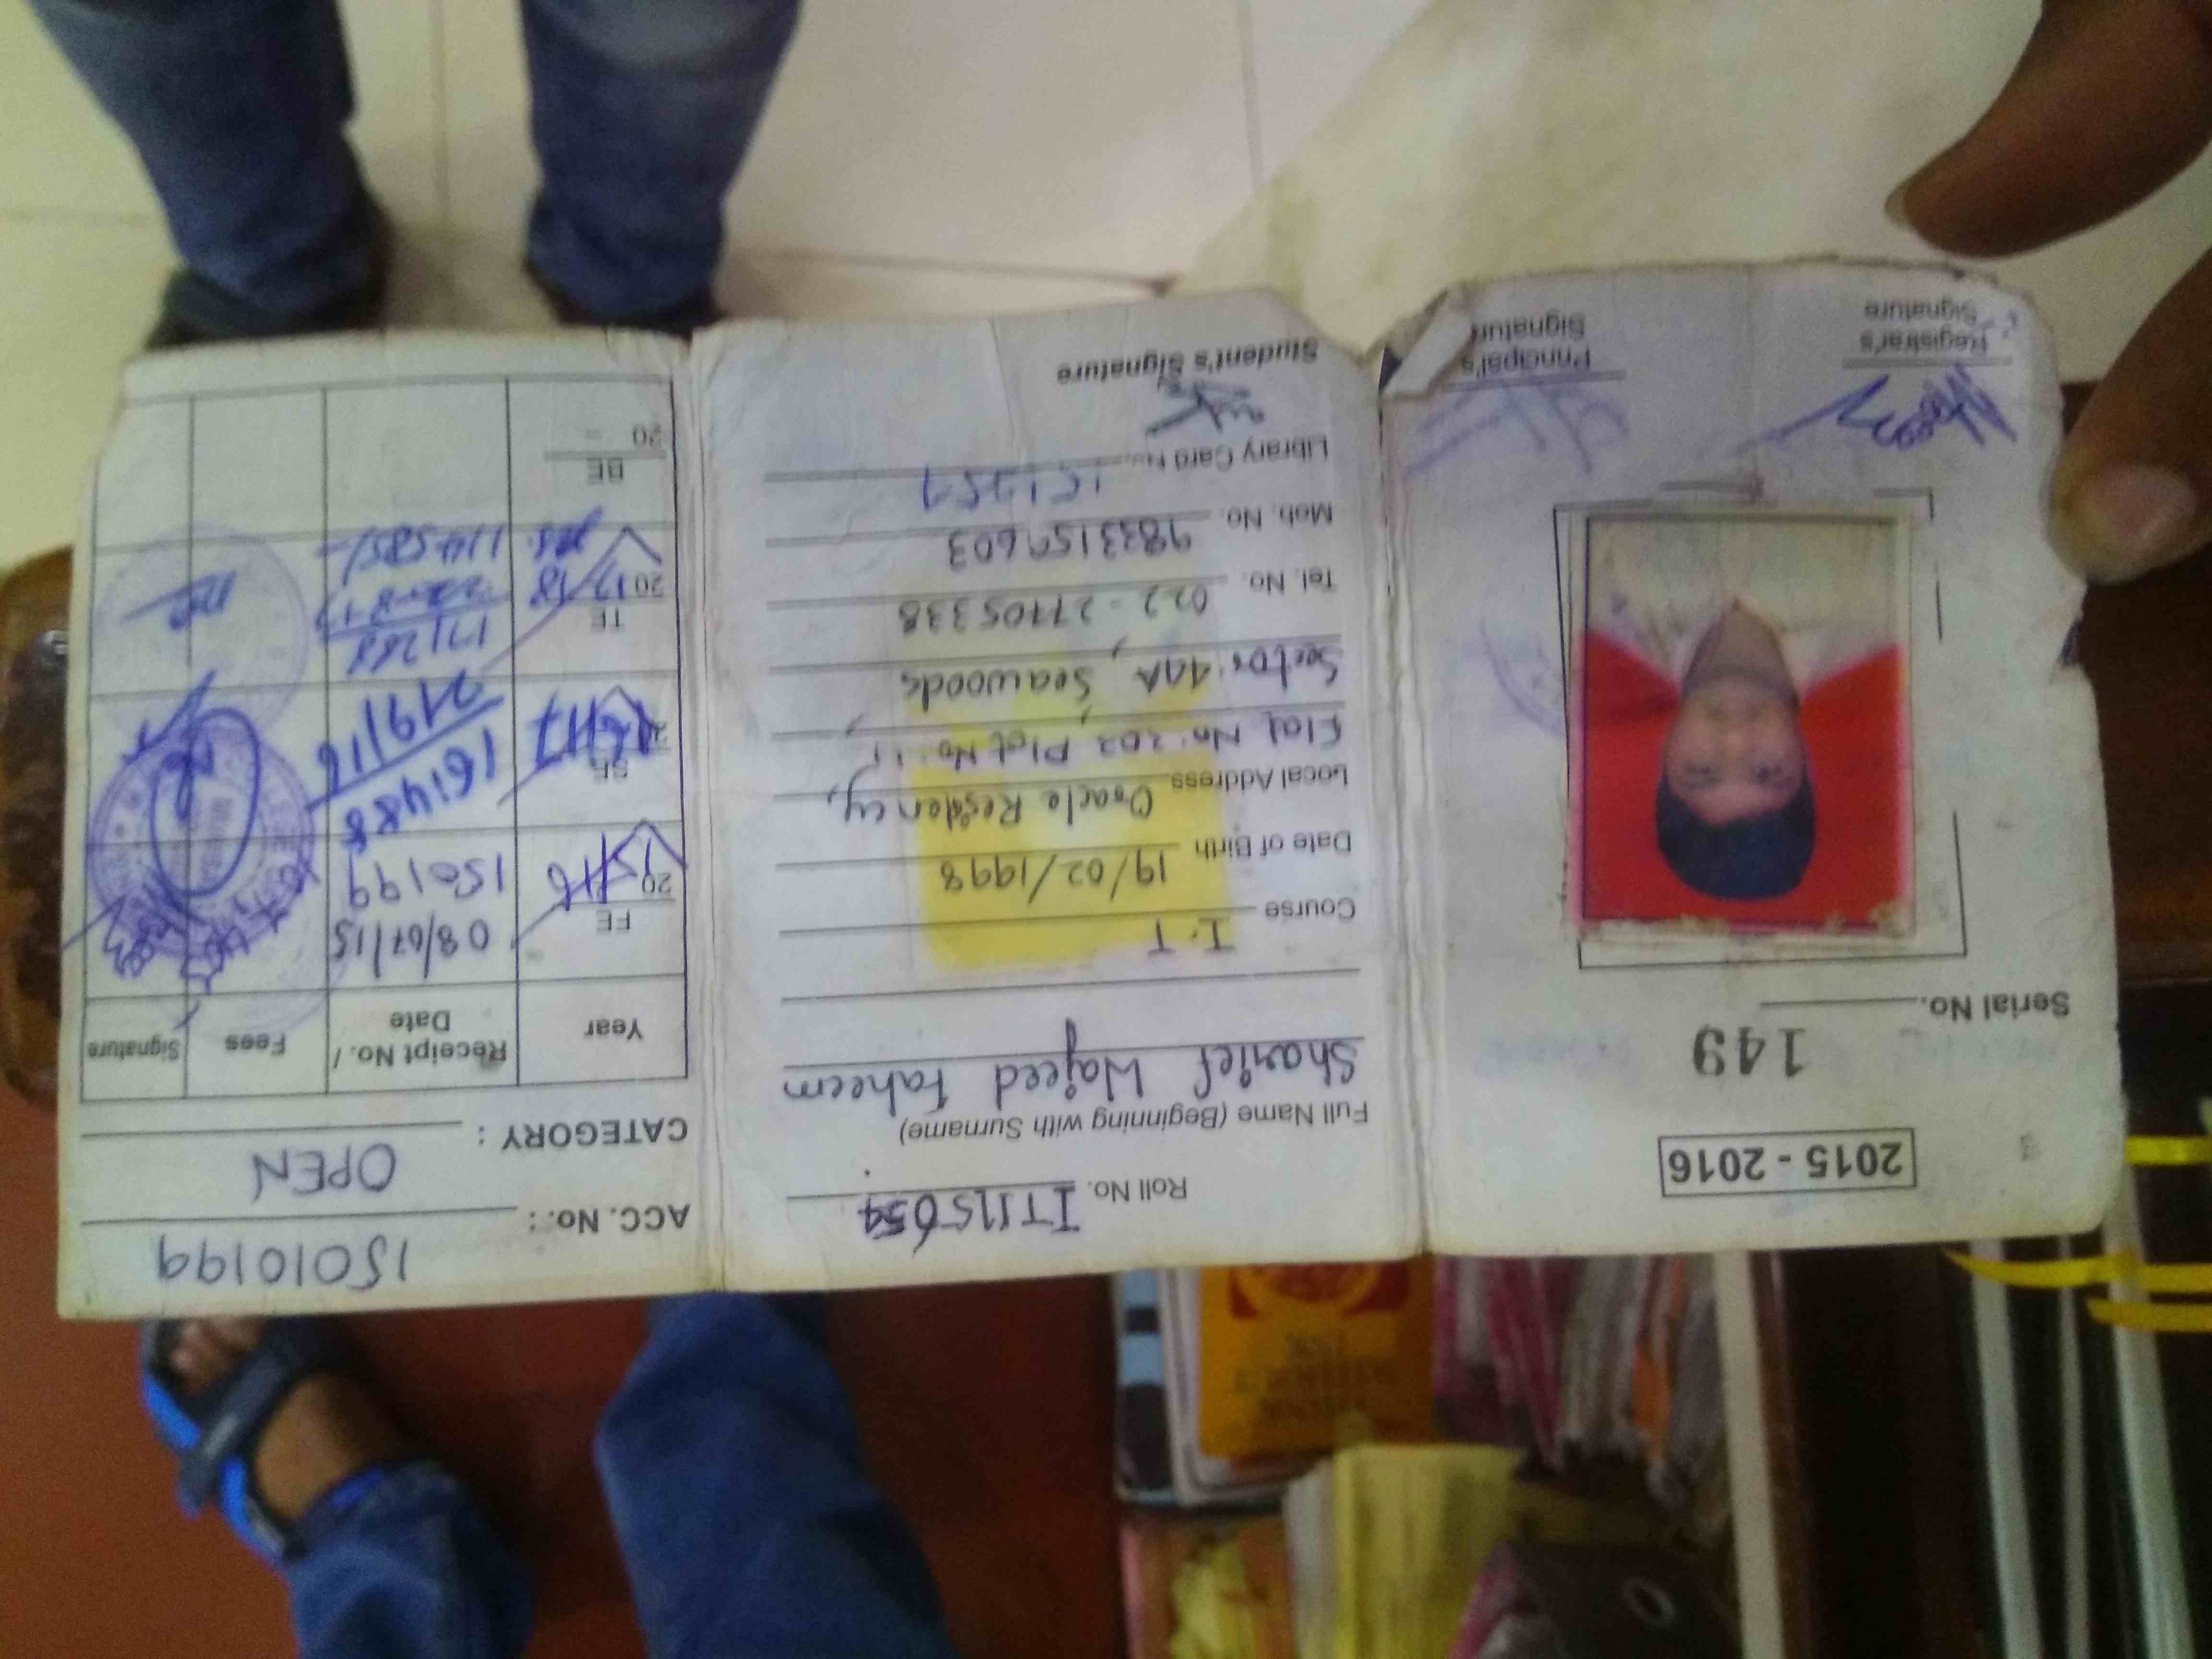 2015 - 2016
149
Serial No.
Registrar's
Signature
Principal's
Signatur
Roll No. IT115054
Full Name (Beginning with Surname)
Sharief Wajeed Faheem
Course I.T
Date of Birth 19/02/1998
Local Address Oracle Residency,
Flat No: 202, Plot No: 11,
Sector 40A, Seawoods
Tel. No. 022-27705338
Mob. No. 9833159603
Library Card No.
Student's Signature
ACC. No. : 15010199
CATEGORY : OPEN
Year Receipt No. / Date Fees Signature
FE 2015/16 08/07/15 150199
SE 16/17 161488 2/9/16
TE 2017 18 171268
BE 20 -